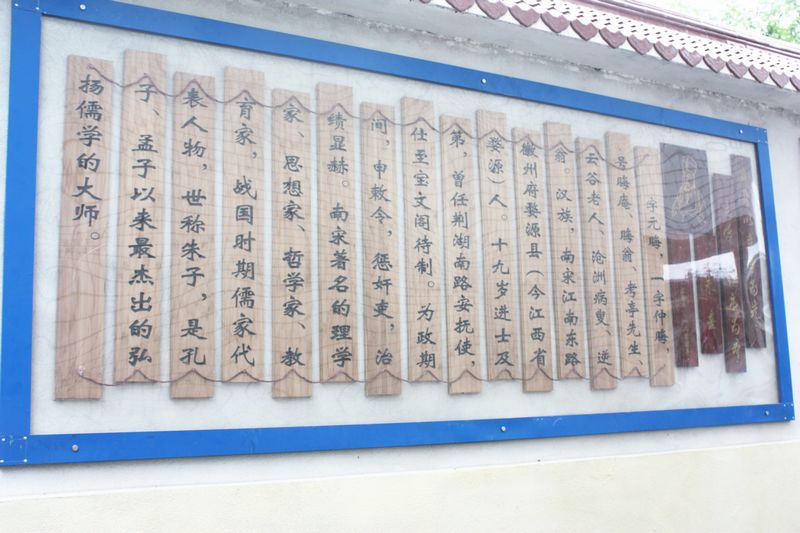 字元晦，一字仲晦，
号晦庵、晦翁、考亭先生
云谷老人、沧洲病叟、逆
翁。汉族，南宋江南东路
徽州府婺源县（今江西省
婺源）人。十九岁进士及
第，曾任荆湖南路安抚使，
仕至宝文阁待制。为政期
间，申敕令，惩奸吏，治
绩显赫。南宋著名的理学
家、思想家、哲学家、教
育家，战国时期儒家代
表人物，世称朱子，是孔
子、孟子以来最杰出的弘
扬儒学的大师。